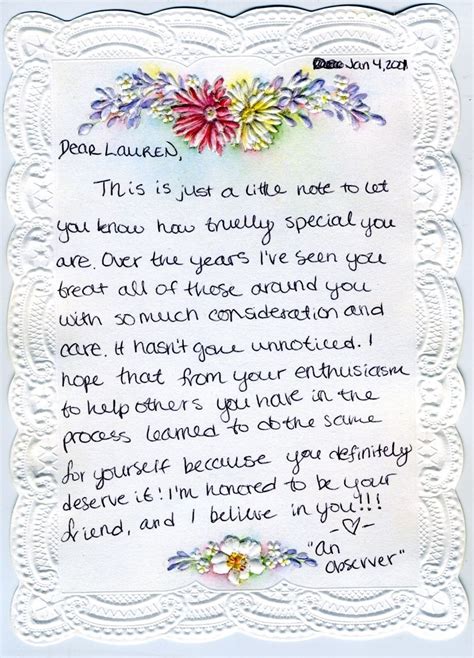 Jan 4, 2001
Dear Lauren,
This is just a little note to let
you know how truelly special you
are. Over the years I've seen you
treat all of those around you
with so much consideration and
care. It hasn't gone unnoticed. I
hope that from your enthusiasm
to help others you have in the
process learned to do the same
for yourself because you definitely
deserve it! I'm honored to be your
friend, and I believe in you!!!
"an
observer"